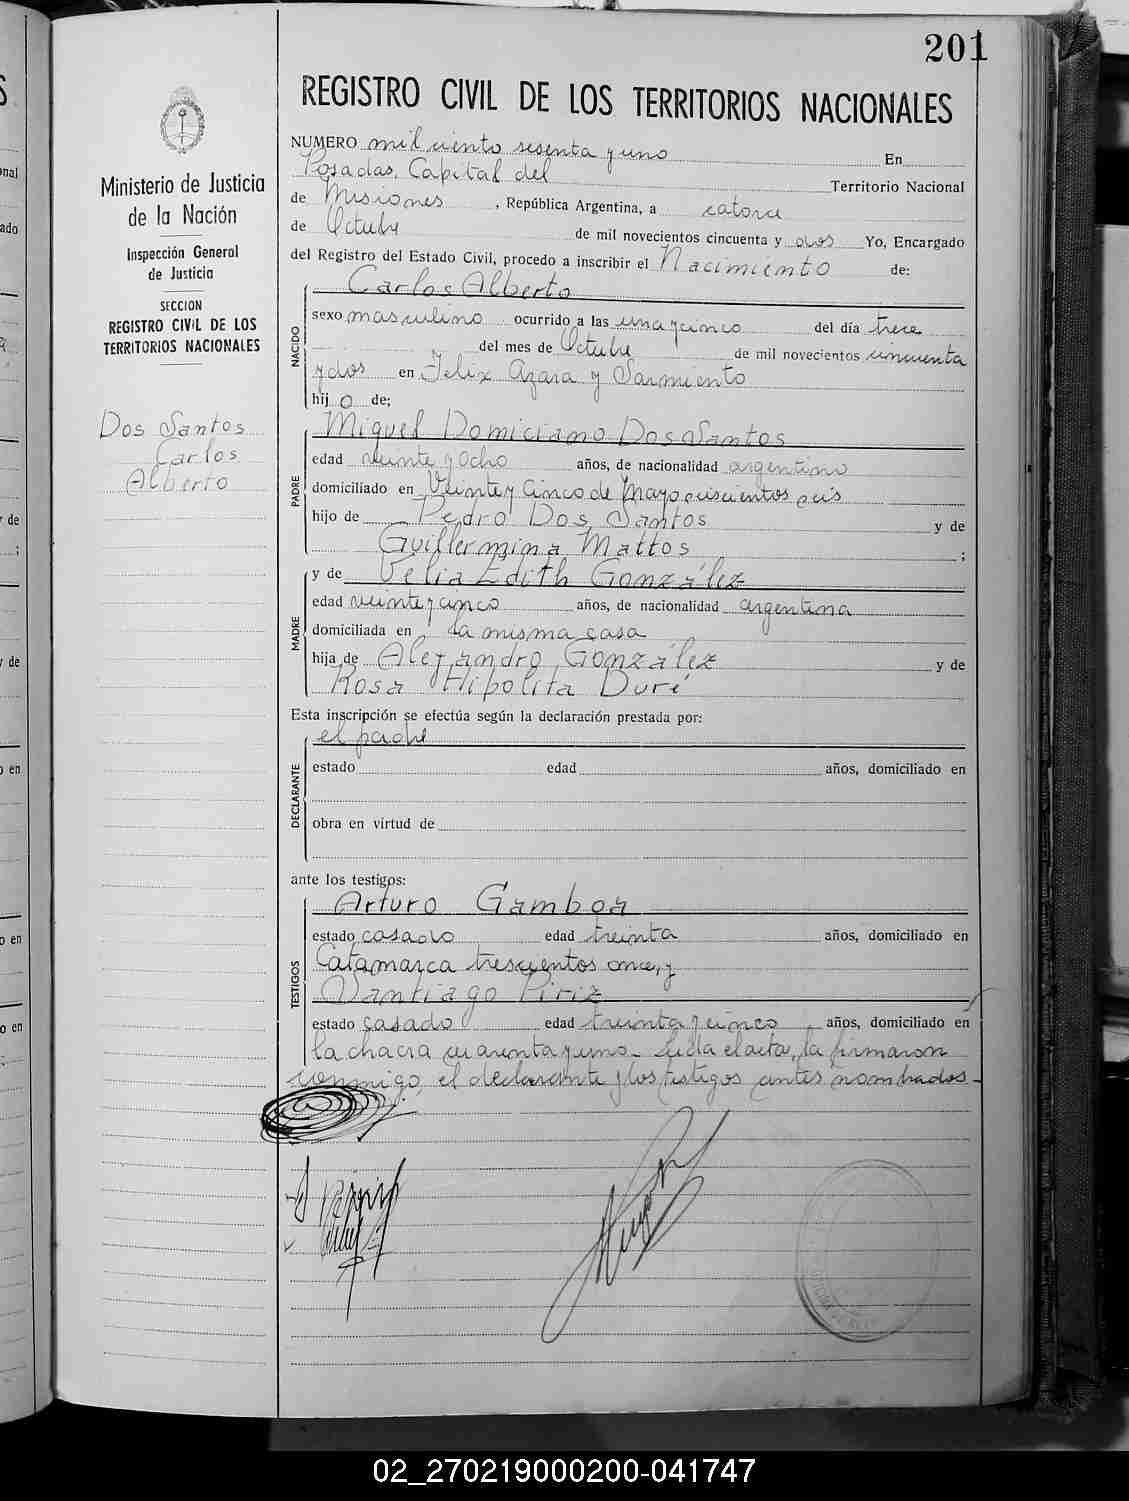 201
REGISTRO CIVIL DE LOS TERRITORIOS NACIONALES
Ministerio de Justicia
de la Nación
Inspección General
de Justicia
SECCION
REGISTRO CIVIL DE LOS
TERRITORIOS NACIONALES
Dos Santos
Carlos
Alberto
NUMERO mil ciento sesenta y uno En
Posadas, Capital del Territorio Nacional
de Misiones, República Argentina, a catorce
de Octubre de mil novecientos cincuenta y dos Yo, Encargado
del Registro del Estado Civil, procedo a inscribir el Nacimiento de:
NACIDO
Carlos Alberto
sexo masculino ocurrido a las una y cinco del día trece
del mes de Octubre de mil novecientos cincuenta
y dos en Felix Azara y Sarmiento
hijo de;
PADRE
Miguel Domiciano Dos Santos
edad veinte y ocho años, de nacionalidad argentino
domiciliado en Veinte y Cinco de Mayo seiscientos seis
hijo de Pedro Dos Santos y de
Guillermina Mattos ;
MADRE
y de Velia Edith González
edad veinte y cinco años, de nacionalidad argentina
domiciliada en la misma casa
hija de Alejandro González y de
Rosa Hipolita Duré
Esta inscripción se efectúa según la declaración prestada por:
DECLARANTE
el padre
estado edad años, domiciliado en
obra en virtud de
ante los testigos:
TESTIGOS
Arturo Gamboa
estado casado edad treinta años, domiciliado en
Catamarca trescientos once, y
Santiago Piriz
estado casado edad treinta y cinco años, domiciliado en
la chacra cuarenta y uno. Leída el acta, la firmaron
conmigo, el declarante y los testigos antes nombrados.
02_270219000200-041747